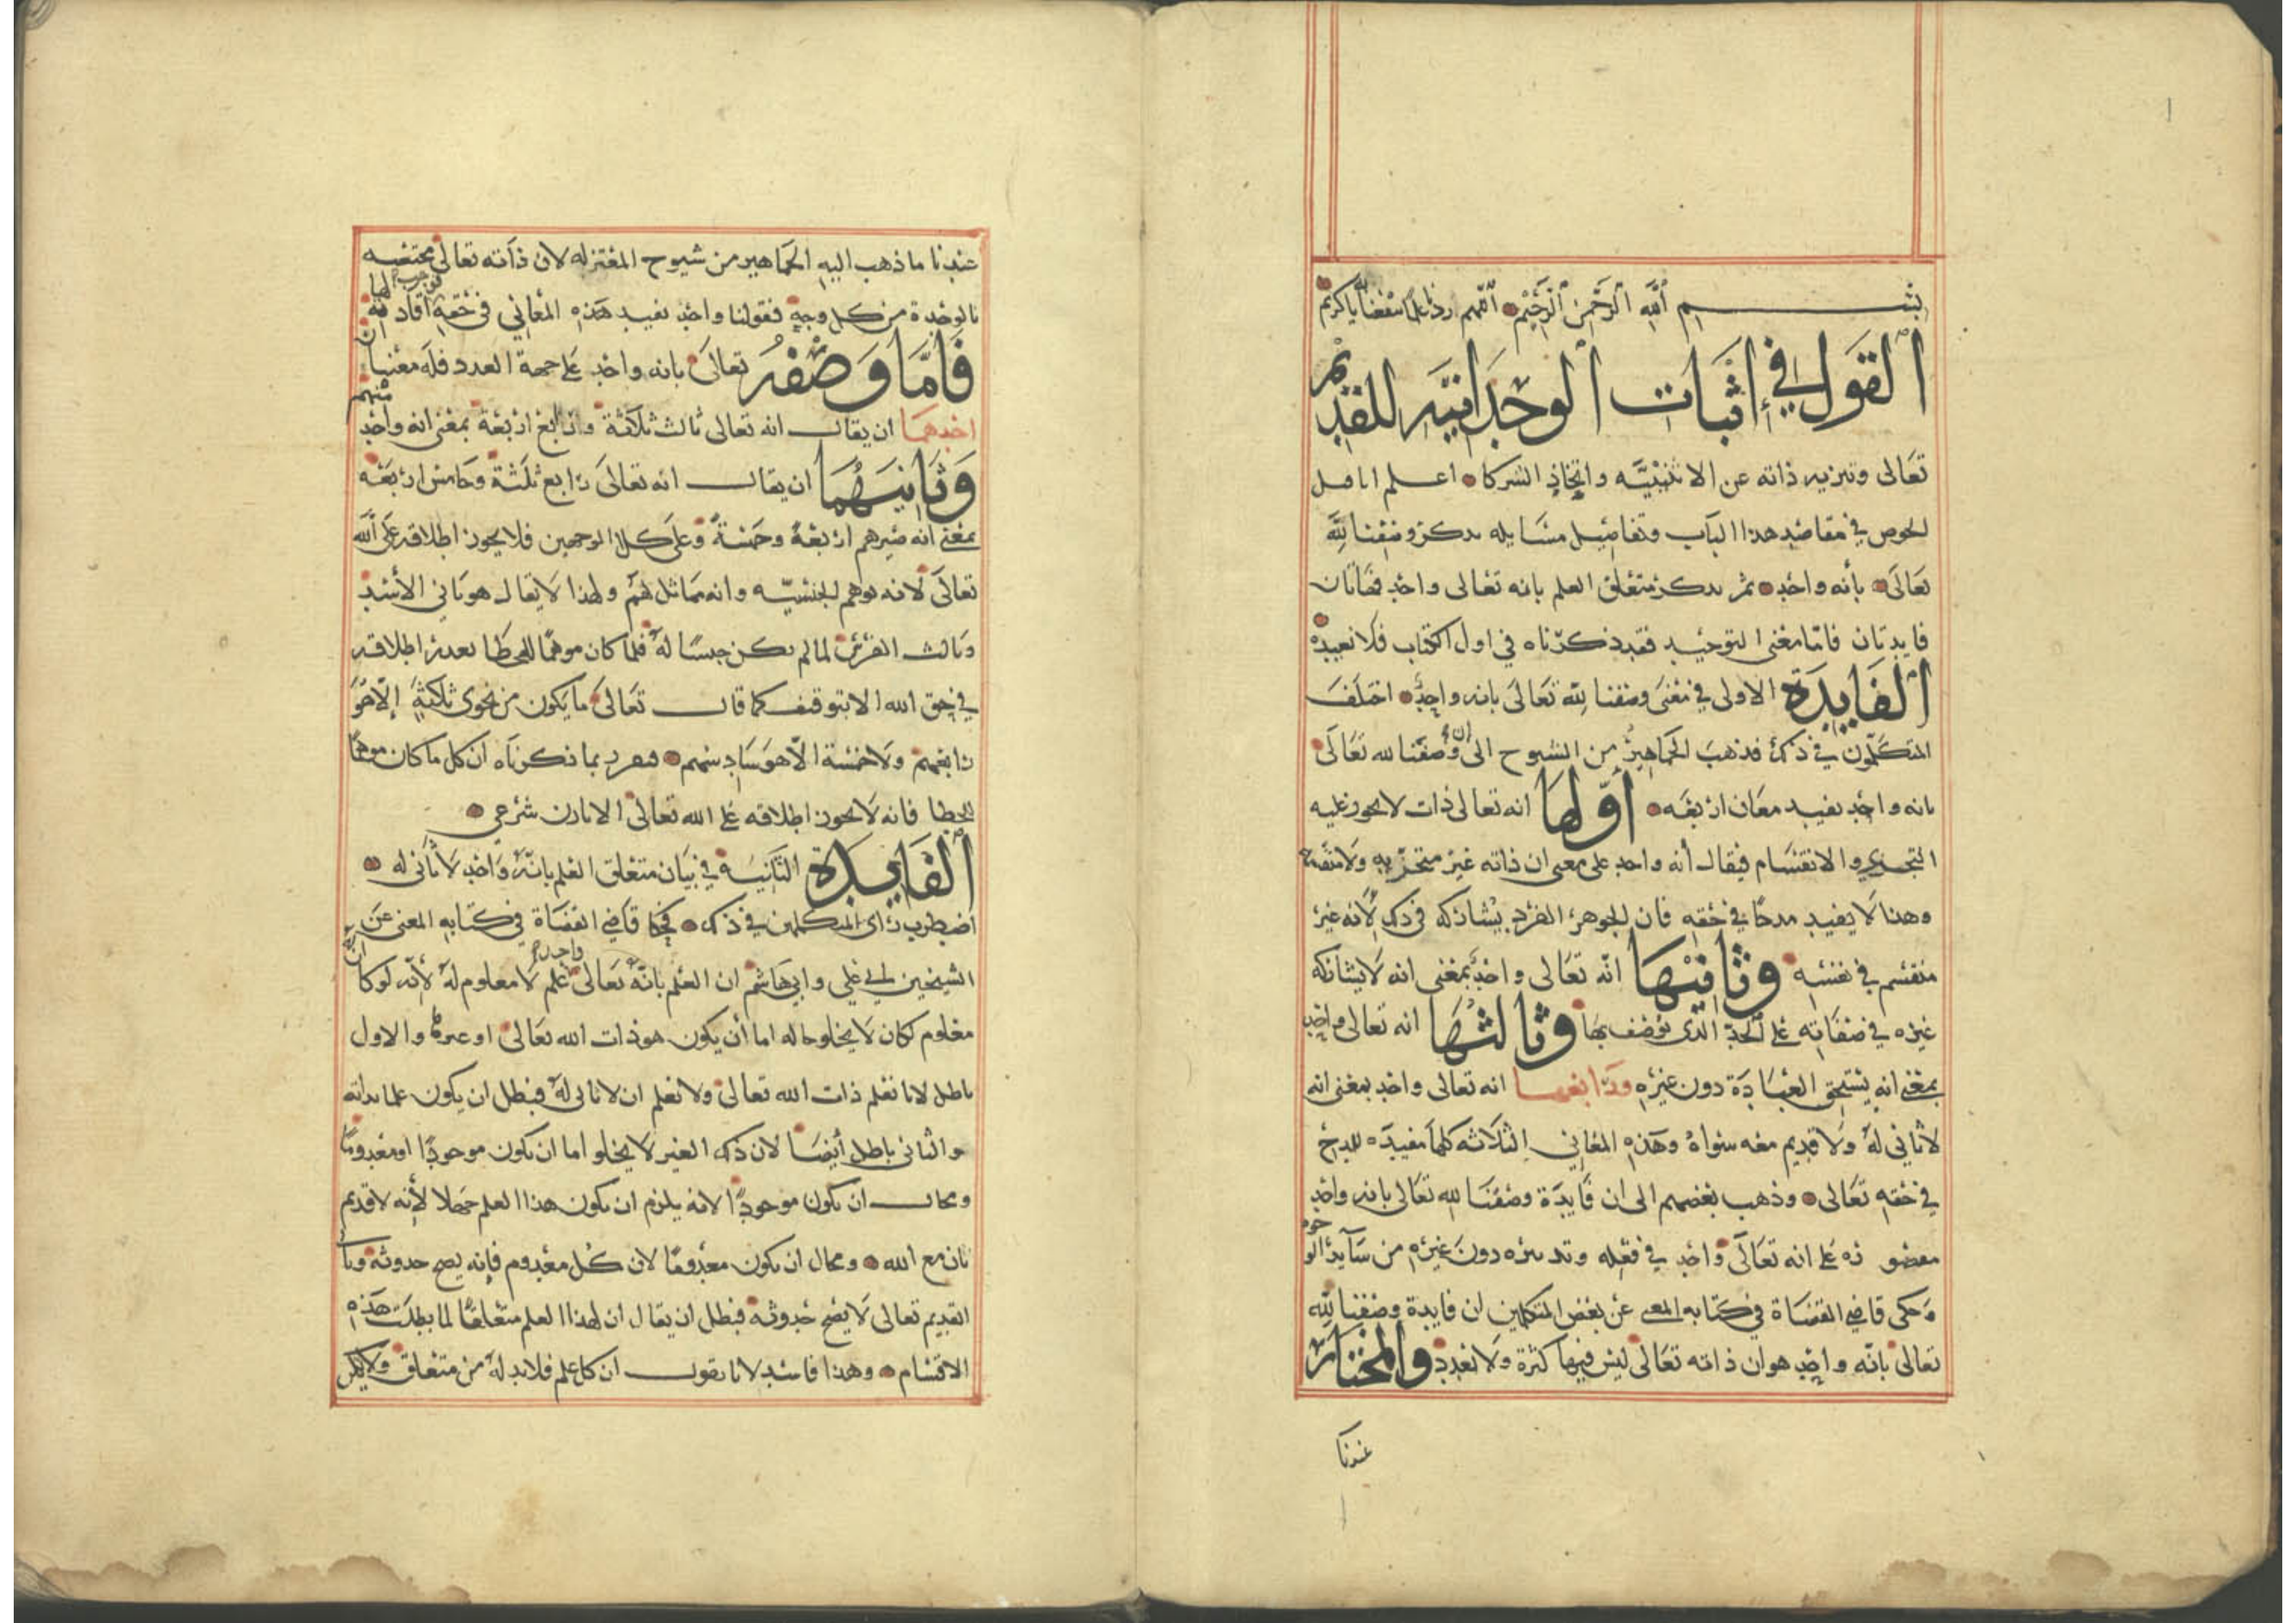 بسم الله الرحمن الرحيم اللهم زدنا علما ينفعنا يا كريم
القول في إثبات الوحدانيه للقديم
تعالى وتنزيه ذاته عن الاثنينيّه واتخاذ الشركا اعلم انا قبل
الخوض في مقاصد هذا الباب وتفاصيل مسايله نذكر وصفنا لله
تعالى بأنه واحد ثم نذكر متعلق العلم بانه تعالى واحد فهاتان
فايدتان فامّا معنى التوحيد فقد ذكرناه في اول الكتاب فلا نعيده
الفايدة الاولى في معنى وصفنا لله تعالى بانه واحد اختلف
المتكلمون في ذلك فذهب الجماهير من الشيوح الى ان وصفنا لله تعالى
بانه واحد يفيد معان اربعه أولها انه تعالى ذات لا يجوز عليه
التجزي والانقسام فيقال أنه واحد على معنى ان ذاته غير متجزيه ولا منقسمة
وهذا لا يفيد مدحًا في حقه فان الجوهر الفرد يشاركه في ذلك لأنه غير
منقسم في نفسه وثانيها انّه تعالى واحد بمعنى انه لا يشاركه
غيره في صفاته على الحد الذي يوصف بها وثالثها انه تعالى واحد
بمعنى انه يستحق العبادة دون غيره ورابعها انه تعالى واحد بمعنى انه
لا ثاني له ولا قديم معه سواه وهذه المعاني الثلاثه كلها مفيده للمدح
في حقه تعالى وذهب بعضهم الى ان فايدة وصفنا لله تعالى بانه واحد
مقصوره على انه تعالى واحد في فعله وتدبيره دون غيره من سآير الوجوه
وحكى قاضي القضاة في كتابه المغني عن بعض المتكلمين ان فايدة وصفنا لله
تعالى بانّه واحد هو ان ذاته تعالى ليس فيها كثرة ولا تعدد والمختار
عندنا
عندنا ما ذهب اليه الجماهير من شيوح المعتزله لان ذاته تعالى مختصه
بالوحدة من كل وجه فقولنا واحد يفيد هذه المعاني في حقه
فامّا وصفه تعالى بانه واحد على جهة العدد فله معنيان
احدهما ان يقال انه تعالى ثالث ثلاثة ورابع اربعة بمعنى انه واحد منهم
وثانيهما ان يقال انه تعالى رابع ثلثة وخامس اربعه
بمعنى انه صيرهم اربعة وخمسة وعلى كل الوجهين فلا يجوز اطلاقه على الله
تعالى لانه يوهم الجنسيّه وانه مماثل لهم ولهذا لا يقال هو ثاني الأسد
وثالث الفرس لما لم يكن جنسًا له فلما كان موهمًا للخطا تعذر اطلاقه
في حق الله الا بتوقيف كما قال تعالى ما يكون من نجوى ثلاثة إلّا هو
رابعهم ولا خمسة الّا هو سادسهم فتقرر بما ذكرناه ان كل ما كان موهمًا
للخطا فانه لا يجوز اطلاقه على الله تعالى الا باذن شرعي
الفايدة الثانيه في بيان متعلق العلم بانّه واحد لا ثاني له
اضطرب رأى المتكلمين في ذلك فحكى قاضي القضاة في كتابه المغني عن
الشيخين ابي علي وابي هاشم ان العلم بانّه تعالى واحد علم لا معلوم له لأنّه لو كان
معلوم لكان لا يخلو حاله اما أن يكون هو ذات الله تعالى او غيرها والاول
باطل لانا نعلم ذات الله تعالى ولا نعلم ان لا ثاني له فبطل ان يكون علما بذاته
والثاني باطل أيضًا لان ذلك الغير لا يخلو اما ان يكون موجودًا او معدومًا
ومحال ان يكون موجودًا لانه يلزم ان يكون هذا العلم جهلا لأنه لا قديم
ثان مع الله ومحال ان يكون معدومًا لان كل معدوم فإنه يصح حدوثه
القديم تعالى لا يصح حدوثه فبطل ان يقال ان لهذا العلم متعلقًا لما بطلت هذه
الاقسام وهذا فاسد لانا نقول ان كل علم فلا بد له من متعلق